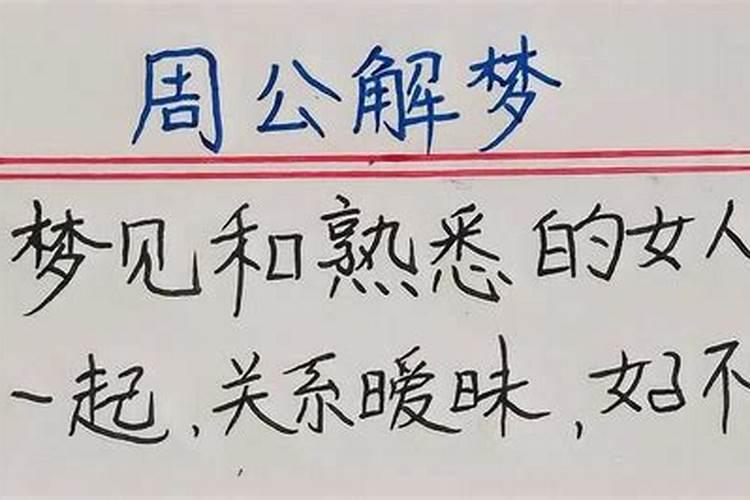 周公解梦
梦见和熟悉的女人
一起,关系暧昧,好不